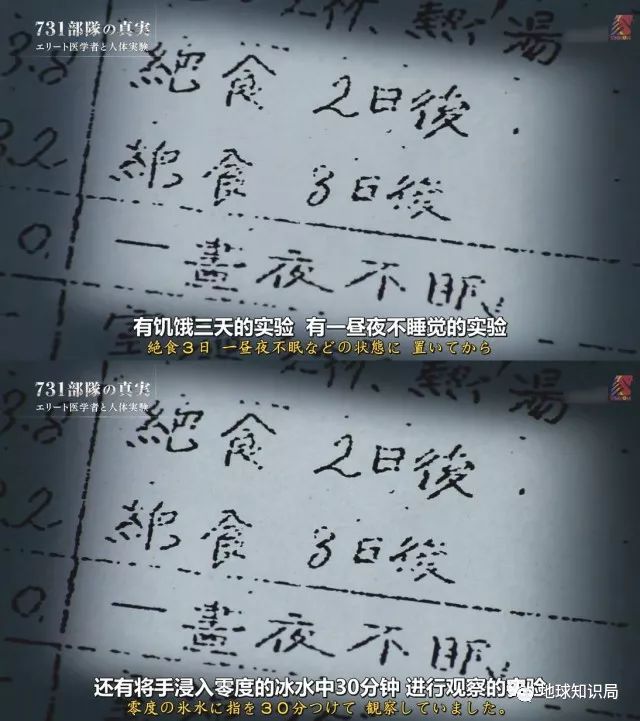 731部隊の真実
エリート医学者と人体実験
熱湯
3.8
絶食 2日後.
3.2
絶食 3日後
0.
一晝夜不眠
有饥饿三天的实验 有一昼夜不睡觉的实验
絶食3日 一昼夜不眠などの状態に 置いてから
731部隊の真実
エリート医学者と人体実験
熱湯
3.8
絶食 2日後.
3.2
絶食 3日後
0.
一晝夜不眠
还有将手浸入零度的冰水中30分钟 进行观察的实验
零度の氷水に指を30分つけて 観察していました。
地球知识局